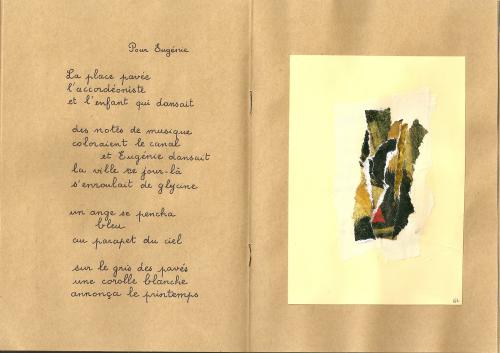 Pour Eugénie
La place pavée
l'accordéoniste
et l'enfant qui dansait
des notes de musique
coloraient le canal
et Eugénie dansait
la ville ce jour-là
s'enroulait de glycine
un ange se pencha
bleu
au parapet du ciel
sur le gris des pavés
une corolle blanche
annonça le printemps